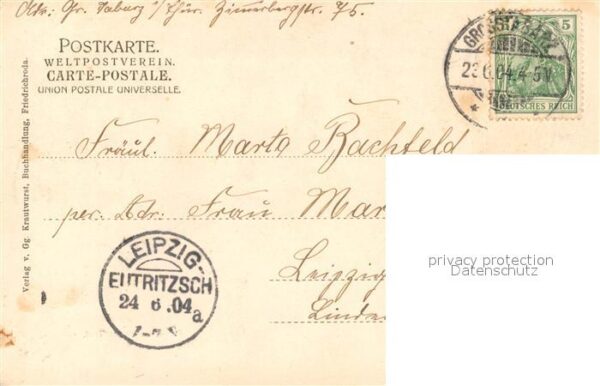 Adr. Gr. Tabarz i/Thür. Zimmerbergstr. 75.
POSTKARTE.
WELTPOSTVEREIN.
CARTE-POSTALE.
UNION POSTALE UNIVERSELLE.
Verlag v. Gg. Krautwurst, Buchhandlung, Friedrichroda.
5
DEUTSCHES REICH
GROSSTABARZ
23 6.04.4-5N
Fräul. Marta Bachfeld
per. Adr. Frau Mar
Leipzig
Linden
LEIPZIG-
EUTRITZSCH
24 6 .04
a
privacy protection
Datenschutz